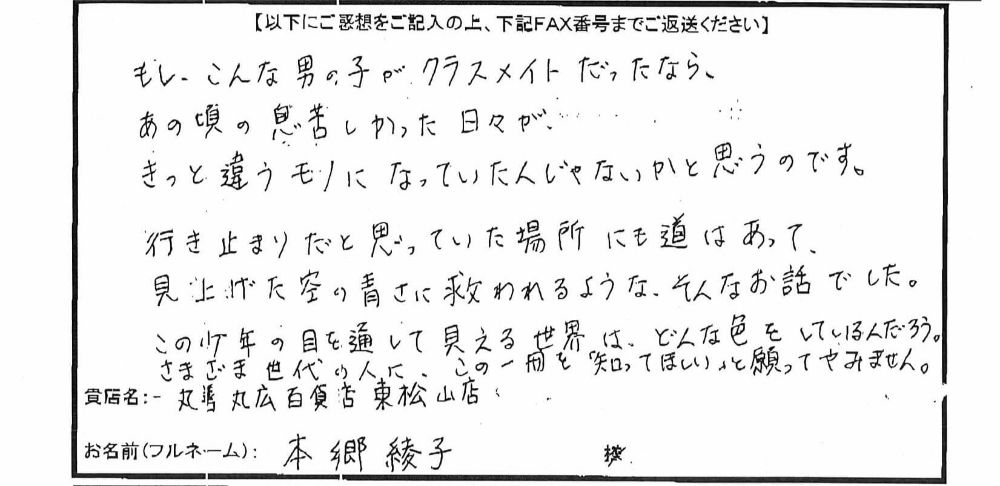 【以下にご感想をご記入の上、下記FAX番号までご返送ください】
もし、こんな男の子が クラスメイト だったなら、
あの頃の息苦しかった日々が、
きっと違うモノになっていたんじゃないかと思うのです。
行き止まりだと思っていた場所にも道はあって、
見上げた空の青さに救われるような、そんなお話でした。
この少年の目を通して見える世界は、どんな色をしているんだろう。
さまざま世代の人に、この一冊を「知ってほしい」と願ってやみません。
貴店名:- 丸善 丸広百貨店 東松山店
お名前(フルネーム): 本郷綾子 様